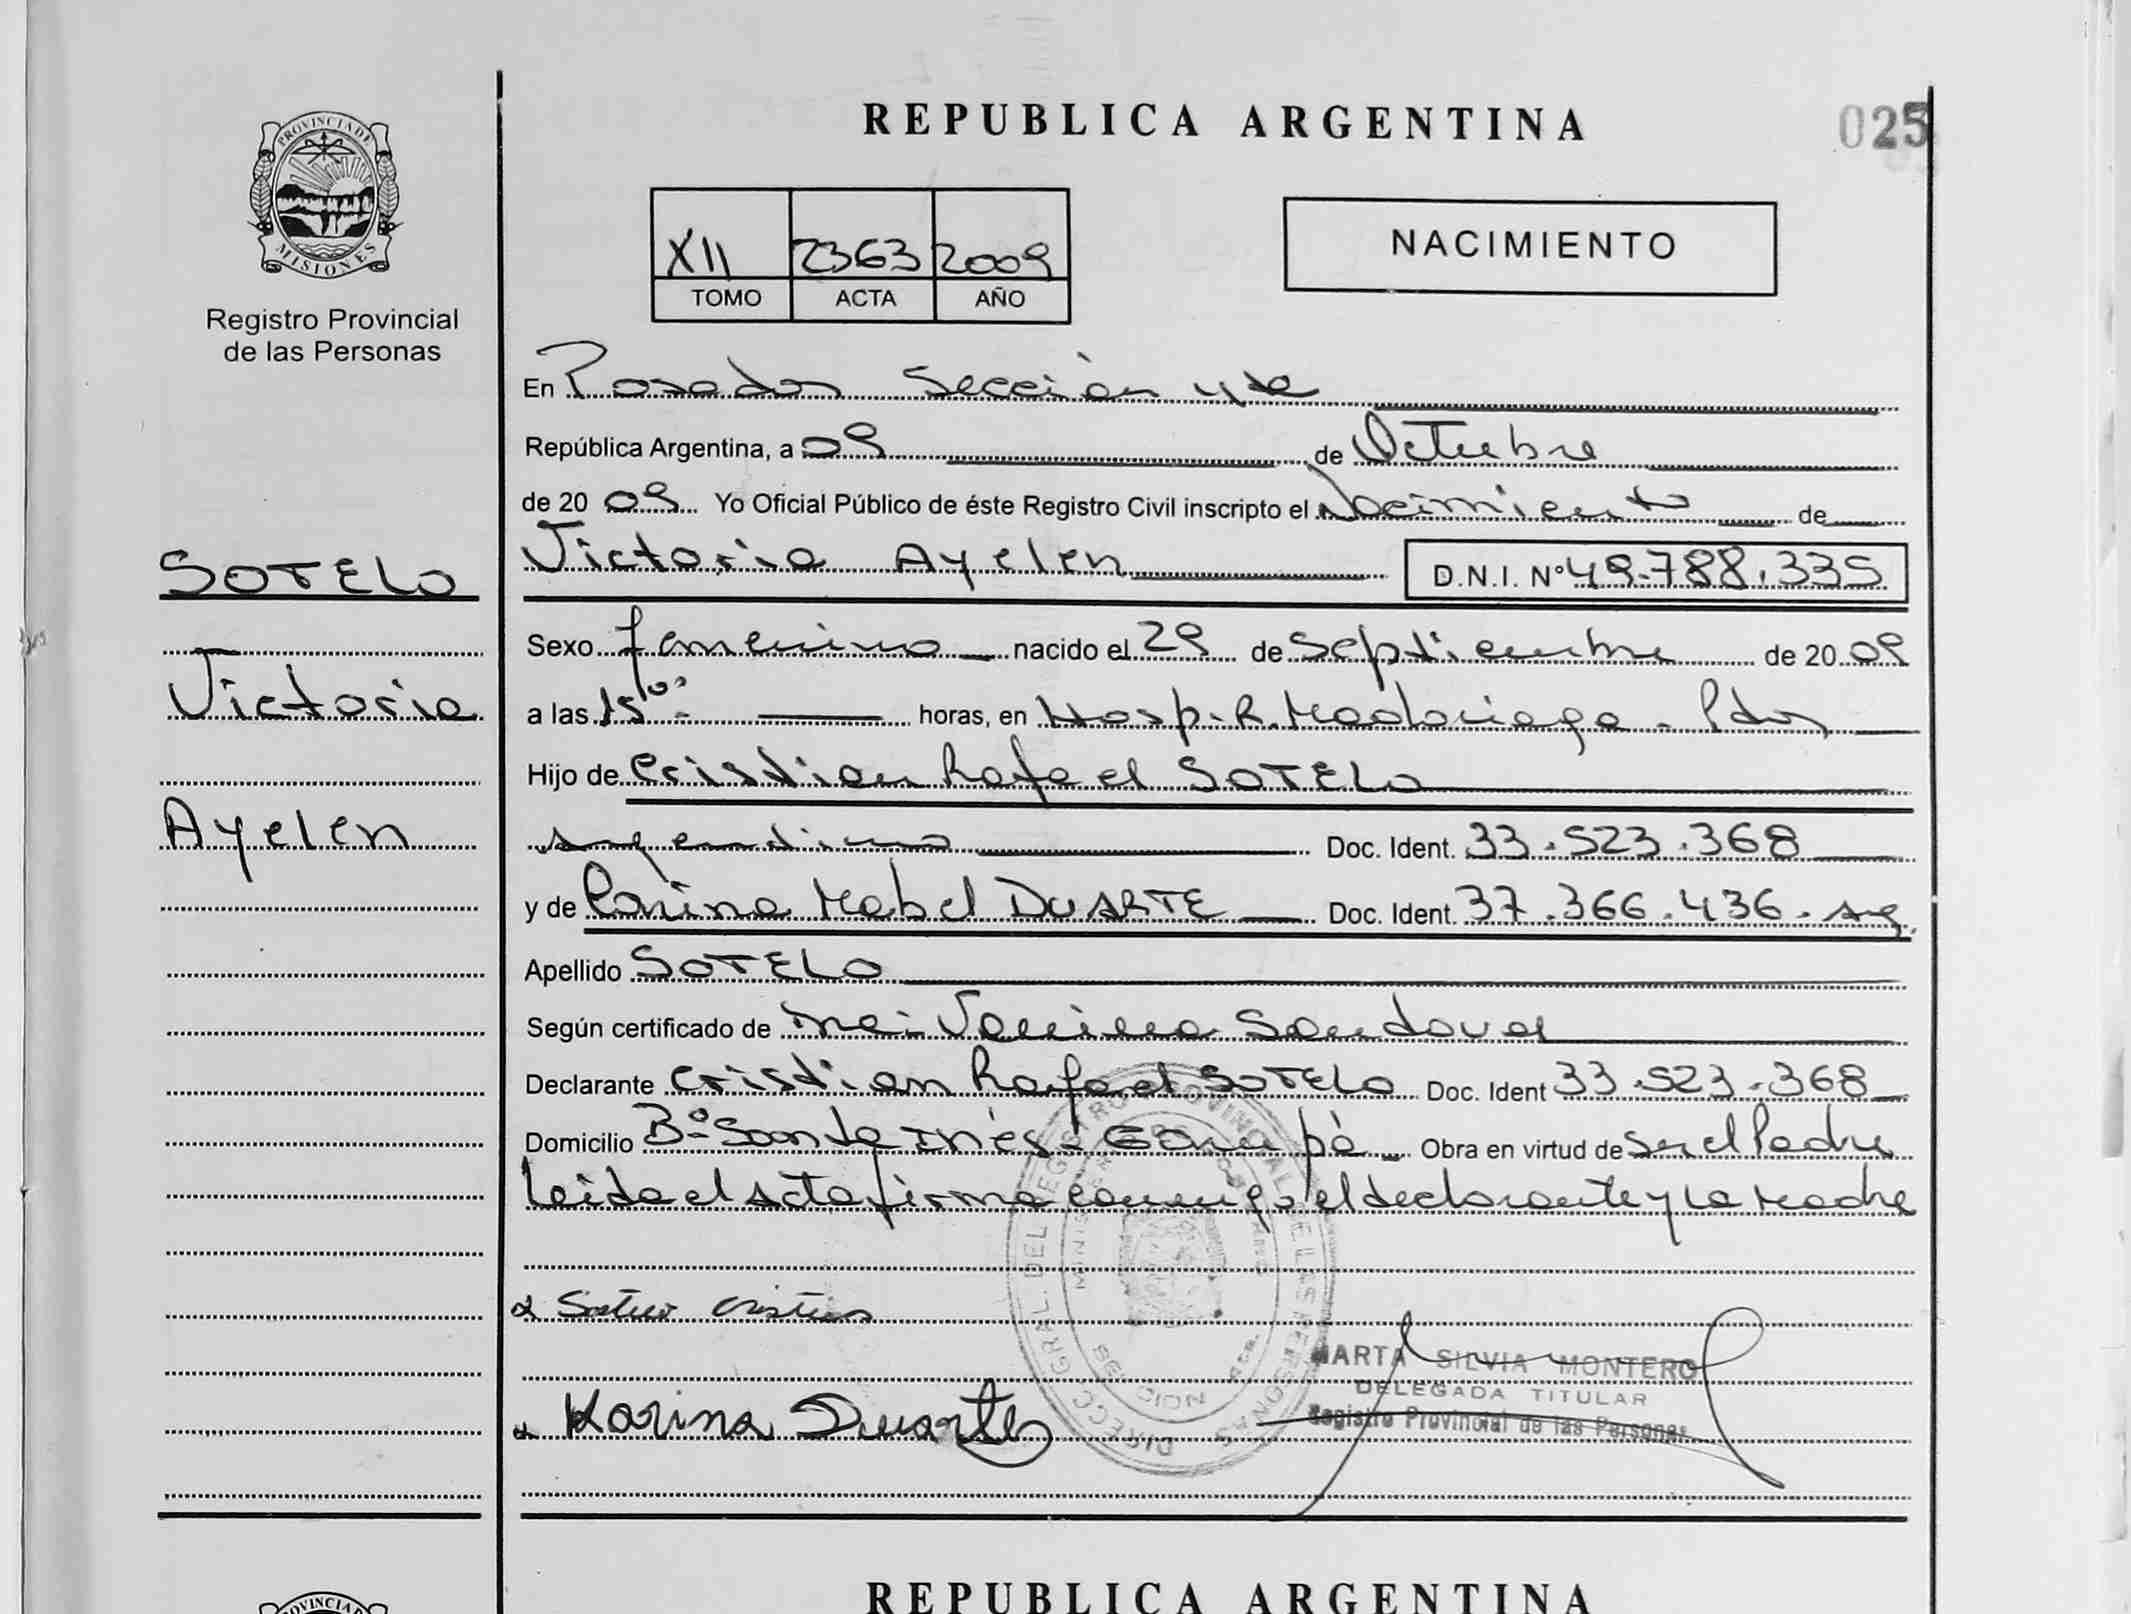 REPUBLICA ARGENTINA
025
PROVINCIA DE
MISIONES
Registro Provincial
de las Personas
XII 2363 2009
TOMO ACTA AÑO
NACIMIENTO
En Posadas Sección 4ta
República Argentina, a 09 de Octubre
de 20 09 Yo Oficial Público de éste Registro Civil inscripto el Nacimiento de
Victoria Ayelen D.N.I. Nº 49.788.335
SOTELO
Victoria
Ayelen
Sexo femenino nacido el 29 de Septiembre de 20 09
a las 15¹⁰ horas, en Hosp. R. Madariaga - Pdas
Hijo de Cristian Rafael SOTELO
Argentino Doc. Ident. 33.523.368
y de Carina Mabel DUARTE Doc. Ident. 37.366.436. Arg.
Apellido SOTELO
Según certificado de Vanina Sandoval
Declarante Cristian Rafael SOTELO Doc. Ident 33.523.368
Domicilio Bº Santa Inés Garupá Obra en virtud de Ser el Padre
Leida el Acta firma conmigo el declarante y La Madre
Sotelo Cristian
Karina Duarte
DIRECC. GRAL. DEL REGISTRO PROVINCIAL DE LAS PERSONAS
MARTA SILVIA MONTERO
DELEGADA TITULAR
Registro Provincial de las Personas
PROVINCIA
REPUBLICA ARGENTINA